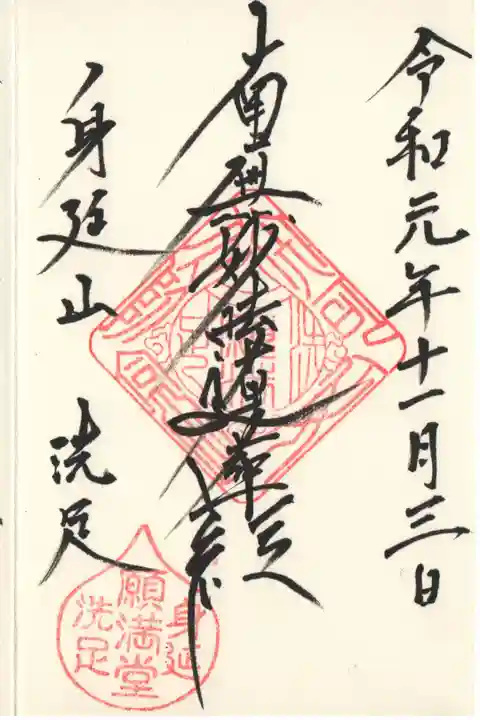 令和元年十一月三日
南無妙法蓮華経
身延山 洗足
身延
願満堂
洗足